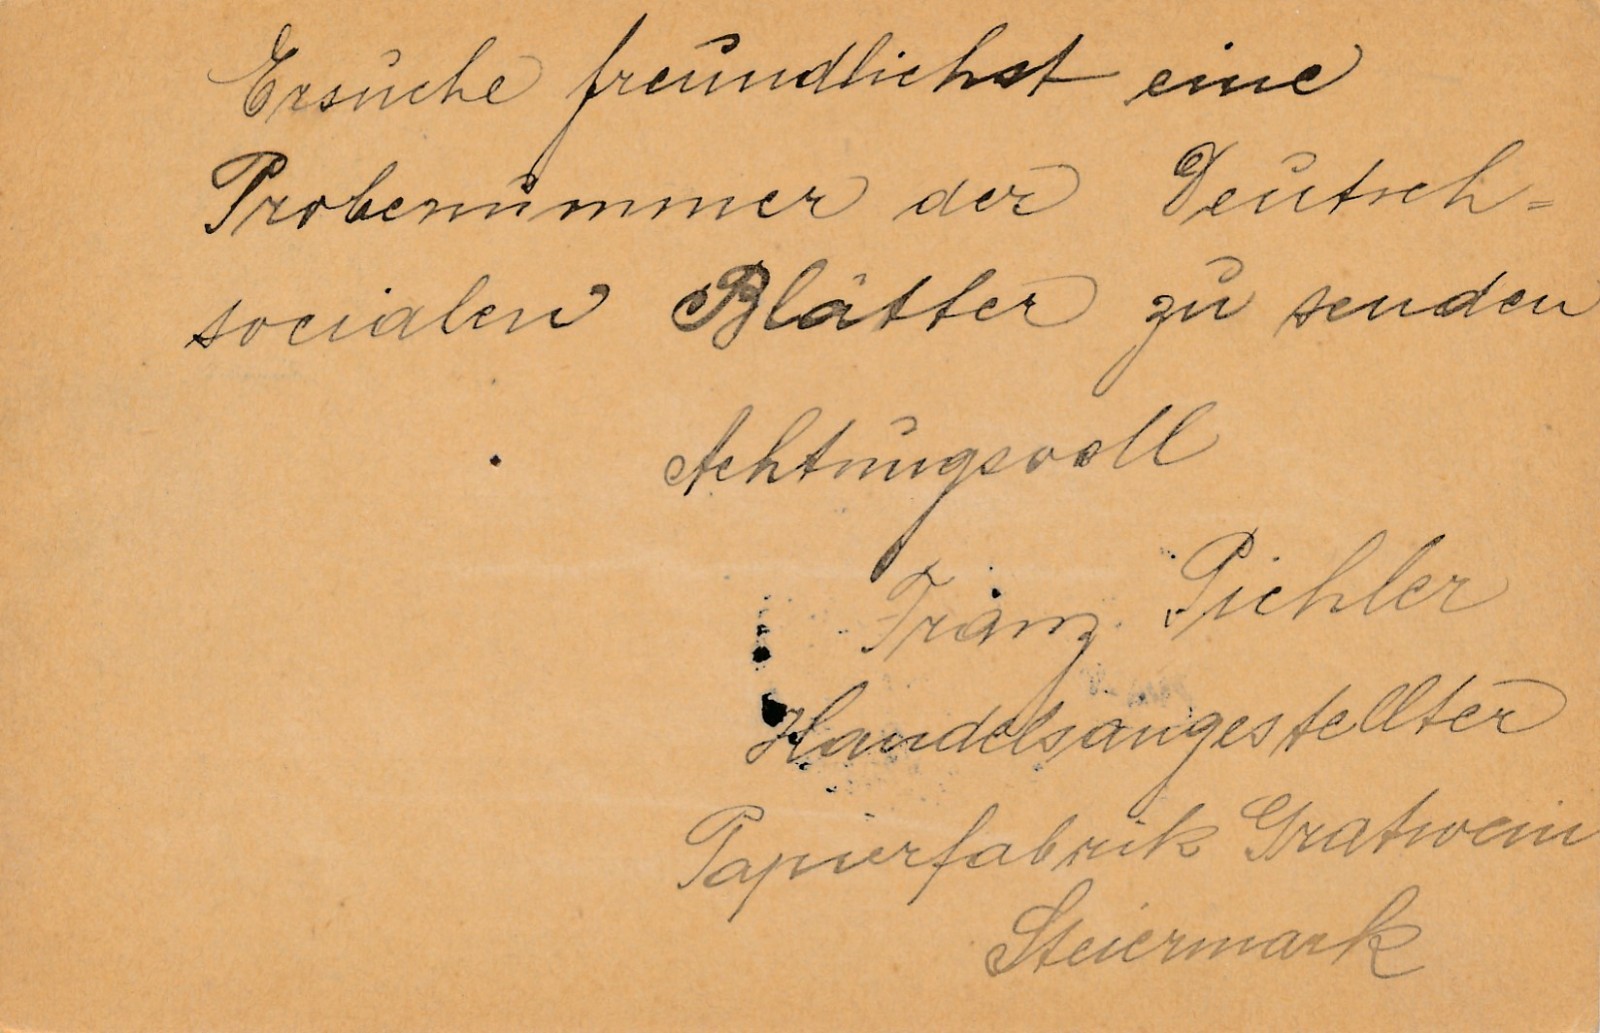 Ersuche freundlichst eine
Probenummer der Deutsch=
socialen Blätter zu senden
Achtungsvoll
Franz Pichler
Handelsangestellter
Papierfabrik Gratwein
Steiermark